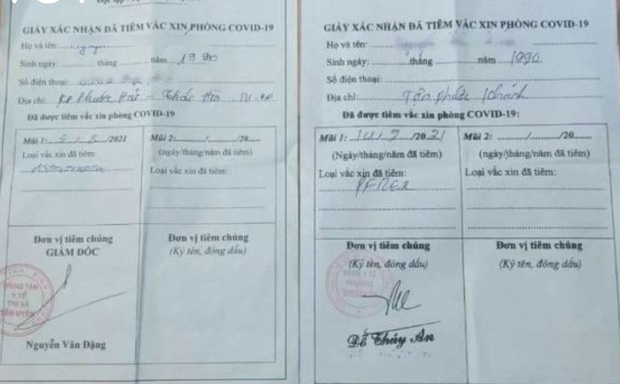 GIẤY XÁC NHẬN ĐÃ TIÊM VẮC XIN PHÒNG COVID-19
Họ và tên:
Sinh ngày: tháng năm 19
Số điện thoại:
Địa chỉ:
Đã được tiêm vắc xin phòng COVID-19:
Mũi 1: 5/8/2021
Loại vắc xin đã tiêm:
Mũi 2: / /20
(ngày/tháng/năm đã tiêm)
Loại vắc xin đã tiêm:
Đơn vị tiêm chủng
GIÁM ĐỐC
TRUNG TÂM
Y TẾ
THỊ XÃ
TÂN UYÊN
Nguyễn Văn Đặng
Đơn vị tiêm chủng
(Ký tên, đóng dấu)
GIẤY XÁC NHẬN ĐÃ TIÊM VẮC XIN PHÒNG COVID-19
Họ và tên:
Sinh ngày: tháng năm 1990
Số điện thoại:
Địa chỉ: Tân Phước Khánh
Đã được tiêm vắc xin phòng COVID-19:
Mũi 1: /20 21
(Ngày/tháng/năm đã tiêm)
Loại vắc xin đã tiêm:
Mũi 2: / /20
(ngày/tháng/năm đã tiêm)
Loại vắc xin đã tiêm:
Đơn vị tiêm chủng
(Ký tên, đóng dấu)
TRẠM Y TẾ
PHƯỜNG
Đỗ Thúy An
Đơn vị tiêm chủng
(Ký tên, đóng dấu)